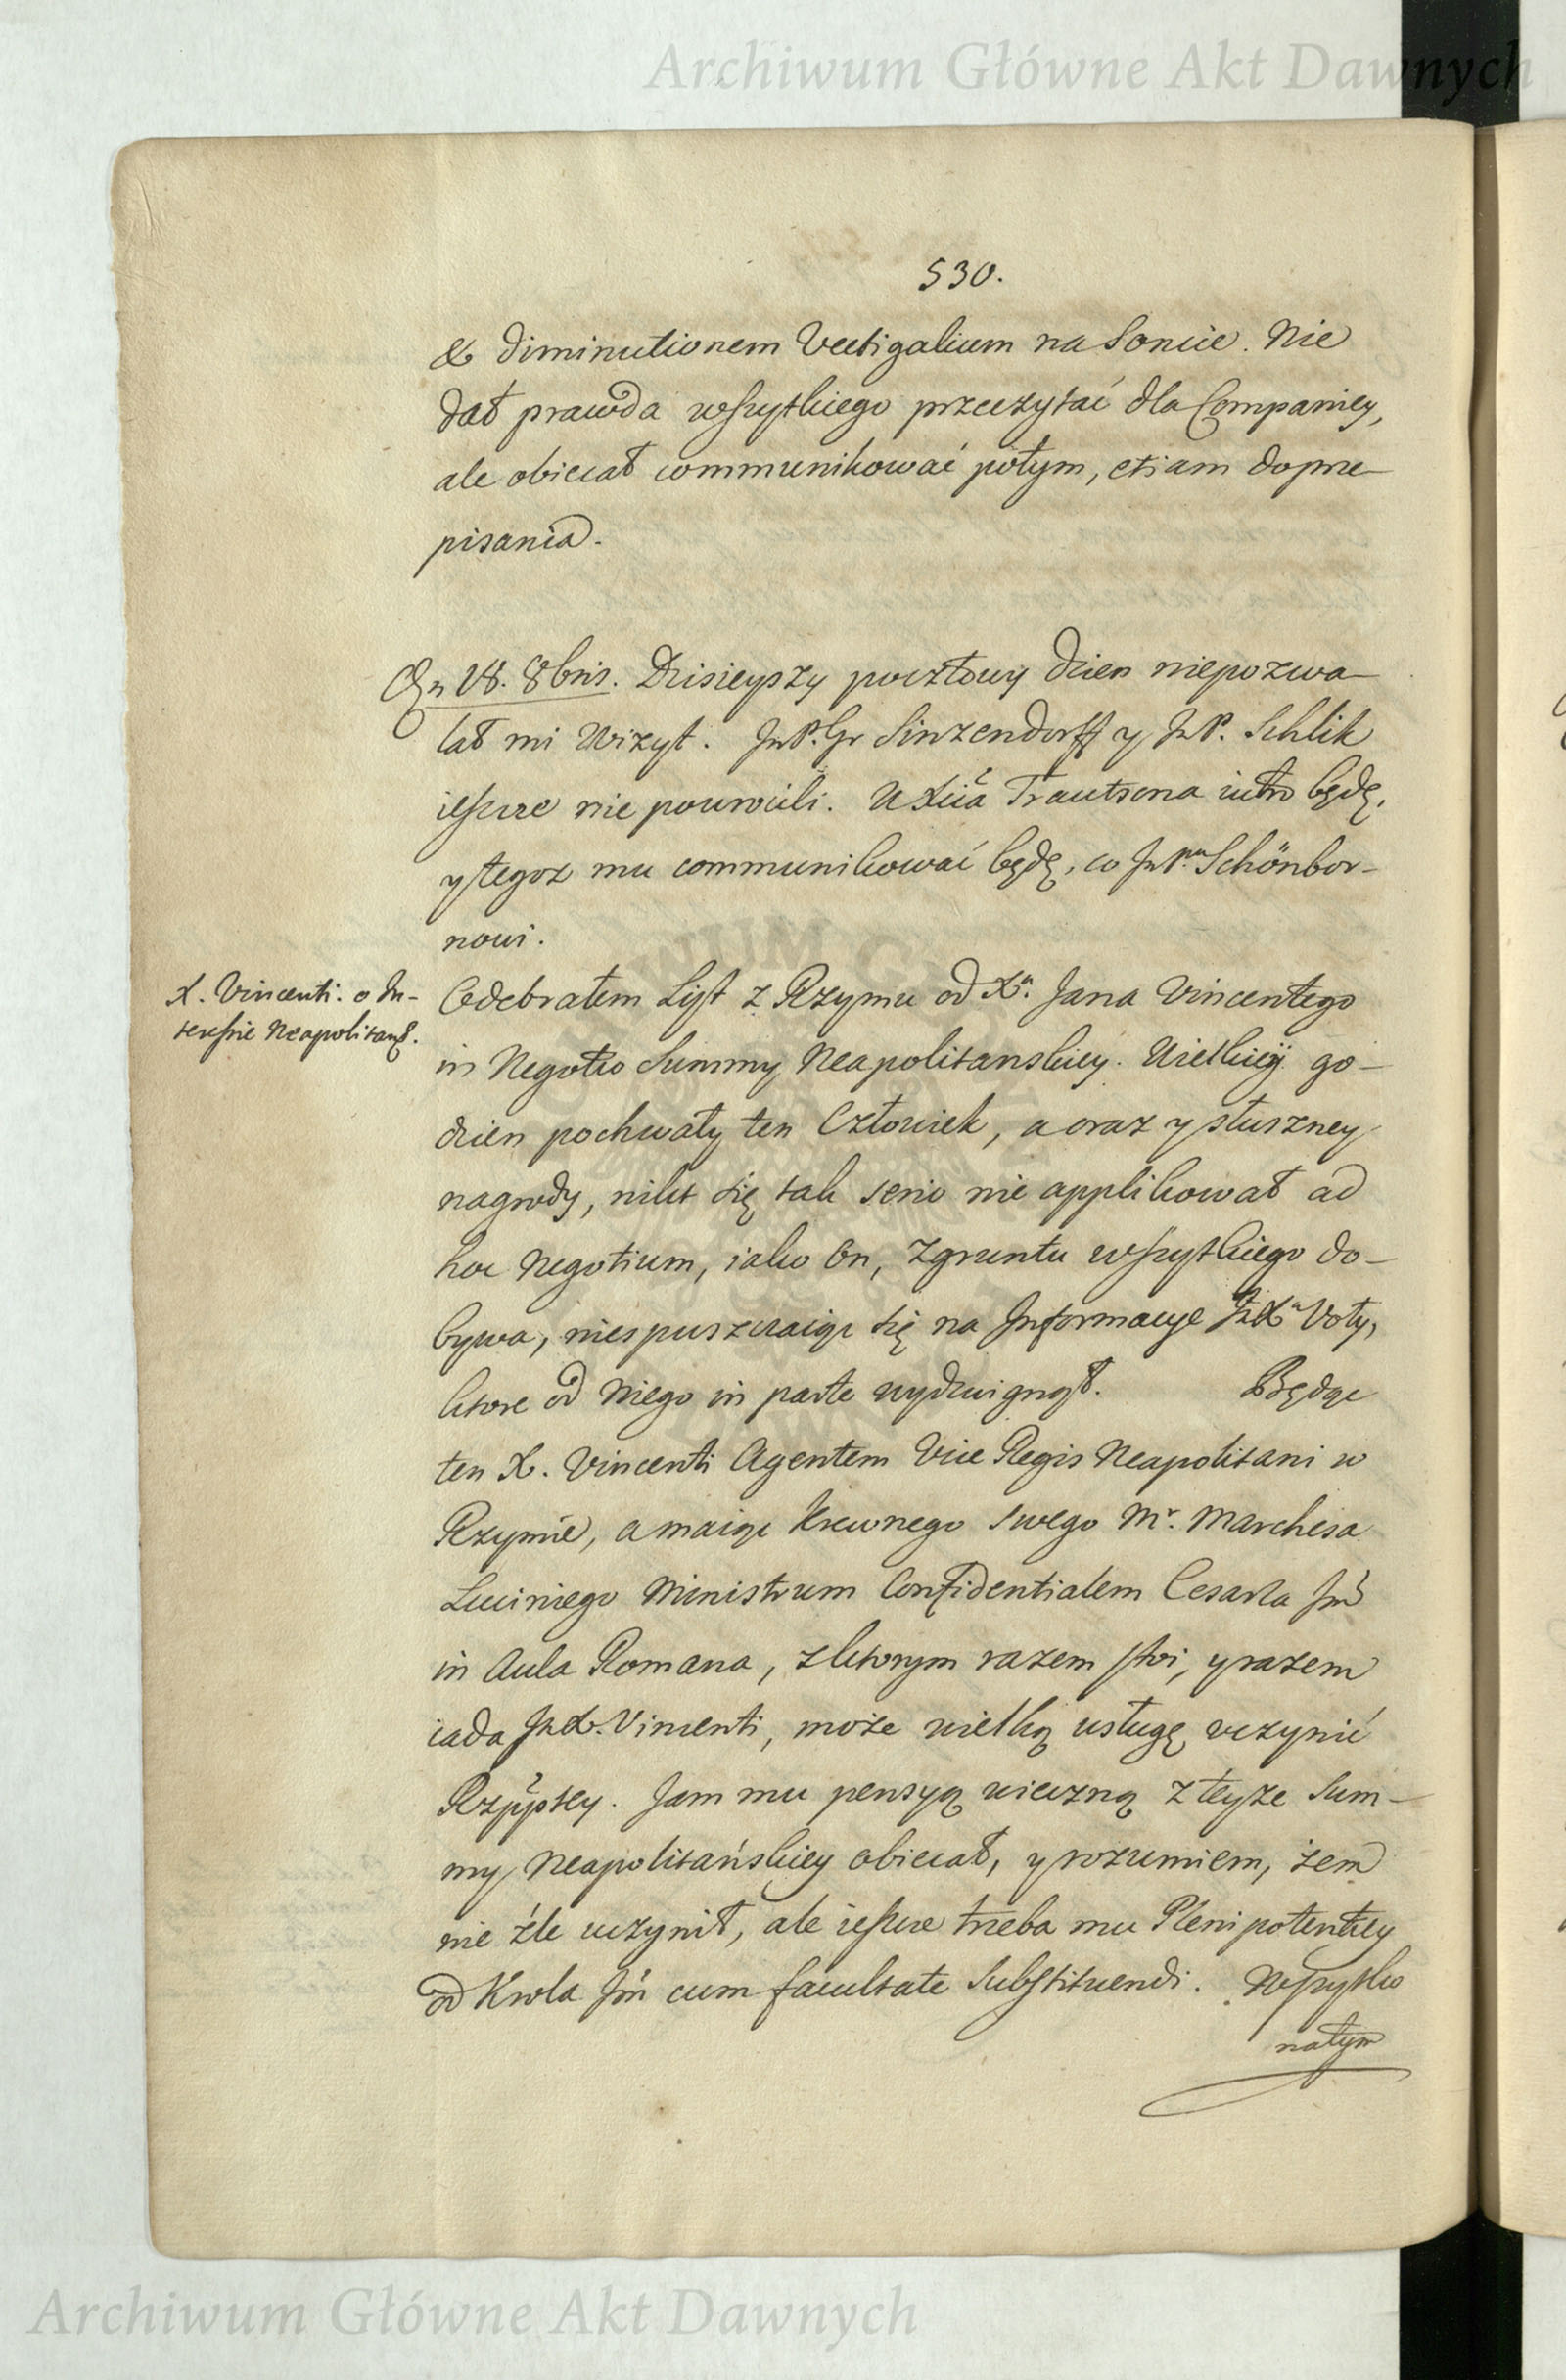 Archiwum Główne Akt Dawnych
530.
& diminutionem Vectigalium na Soncie. Nie
dał prawda wszytkiego przeczytać dla Compániey,
ale obiecał communikować potym, etiam do prze-
pisania.
Dn 18. 8bris. Dzisieyszy pocztowy dzien niepozwa-
lał mi Wizyt. JnP. Gr Sinzendorff y JnP. Schlik
ieszcze nie powrócili. U Xcia Trautsona iutro będę,
y tegoż mu communikować będę, co JnPnu Schönbor-
nowi.
X. Vincenti. o In-
teressie Neapolitańs.
Odebrałem List z Rzymu od Xa. Jana Vincentego
in Negotio Summy Neapolitanskiey. Wielkiey go-
dzien pochwały ten Człowiek, a oraz y słuszney
nagrody, nikt się tak serio nie applikował ad
hoc Negotium, iako On, Zgruntu wszytkiego do-
bywa, niespuszczaiąc się na Informacye JnXa Voty,
ktore od Niego in parte wydzwignął. Będąc
ten X. Vincenti Agentem Vice Regis Neapolitani w
Rzymie, a maiąc Krewnego swego Mr. Marchesa
Luciniego Ministrum Confidentialem Cesarza Jm
in Aula Romana, z ktorym razem stoi, y razem
iada JnX. Vincenti, może wielką usługę uczynić
Rzpptey. Jam mu pensyą wieczną z teyże Sum-
my Neapolitańskiey obiecał, y rozumiem, żem
nie źle uczynił, ale ieszcze trzeba mu Plenipotentiey
od Krola Jm cum facultate Substituendi. Wszytko
natym
Archiwum Główne Akt Dawnych